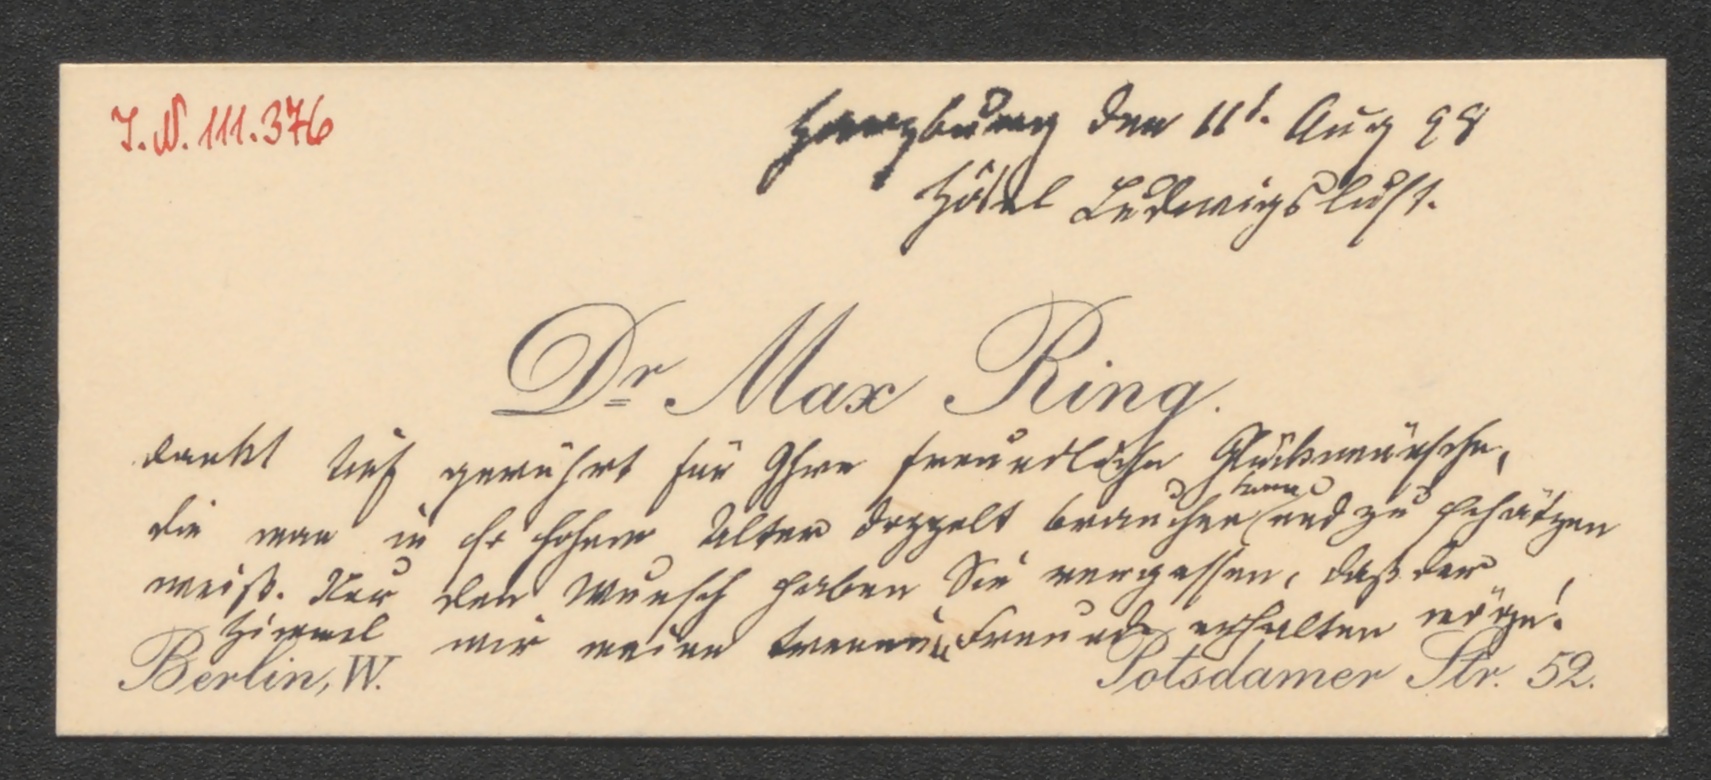 I. N. 111.376
Harzburg den 11t. Aug 98
Hôtel Ludwigslust.
Dr. Max Ring.
dankt tief gerührt für Ihre freundlichen Glückwünsche,
die man in so hohem Alter doppelt brauchen kann und zu schätzen
weiß. Nur den Wunsch haben Sie vergessen, daß der
Himmel mir meine treuen Freunde erhalten möge!
Berlin, W. Potsdamer Str. 52.